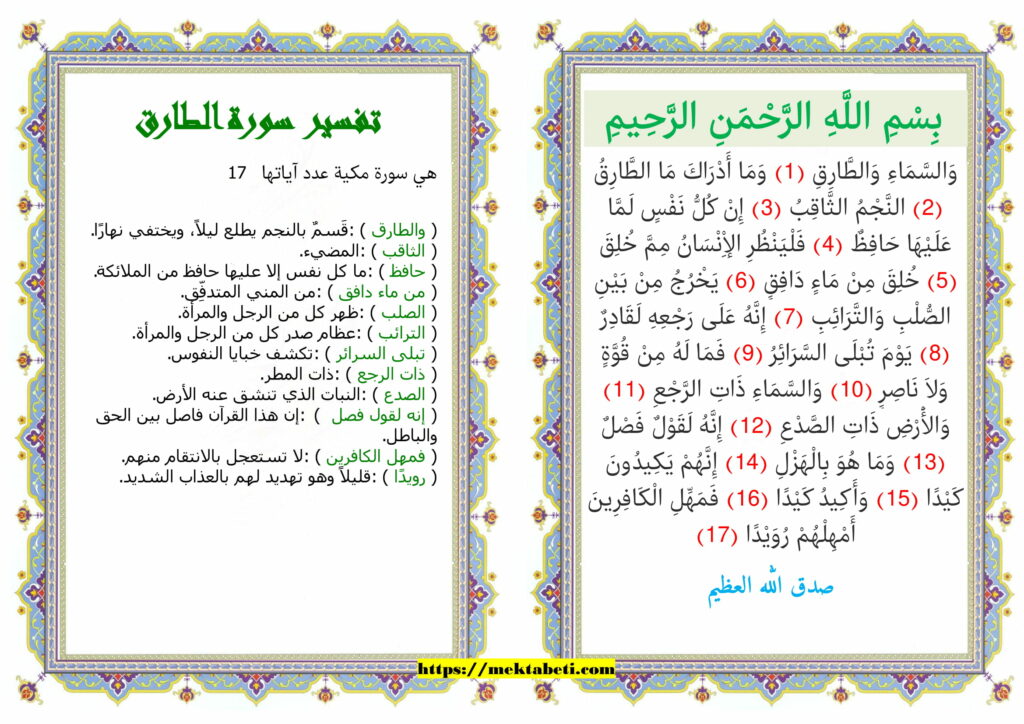 بِسْمِ اللَّهِ الرَّحْمَنِ الرَّحِيمِ
وَالسَّمَاءِ وَالطَّارِقِ (1) وَمَا أَدْرَاكَ مَا الطَّارِقُ
(2) النَّجْمُ الثَّاقِبُ (3) إِنْ كُلُّ نَفْسٍ لَمَّا
عَلَيْهَا حَافِظٌ (4) فَلْيَنْظُرِ الْإِنْسَانُ مِمَّ خُلِقَ
(5) خُلِقَ مِنْ مَاءٍ دَافِقٍ (6) يَخْرُجُ مِنْ بَيْنِ
الصُّلْبِ وَالتَّرَائِبِ (7) إِنَّهُ عَلَى رَجْعِهِ لَقَادِرٌ
(8) يَوْمَ تُبْلَى السَّرَائِرُ (9) فَمَا لَهُ مِنْ قُوَّةٍ
وَلاَ نَاصِرٍ (10) وَالسَّمَاءِ ذَاتِ الرَّجْعِ (11)
وَالأْرْضِ ذَاتِ الصَّدْعِ (12) إِنَّهُ لَقَوْلٌ فَصْلٌ
(13) وَمَا هُوَ بِالْهَزْلِ (14) إِنَّهُمْ يَكِيدُونَ
كَيْدًا (15) وَأَكِيدُ كَيْدًا (16) فَمَهِّلِ الْكَافِرِينَ
أَمْهِلْهُمْ رُوَيْدًا (17)
صدق الله العظيم
تفسير سورة الطارق
هي سورة مكية عدد آياتها 17
( والطارق ) :قَسمٌ بالنجم يطلع ليلاً، ويختفي نهارًا.
( الثاقب ) :المضيء.
( حافظ ) :ما كل نفس إلا عليها حافظ من الملائكة.
( من ماء دافق ) :من المني المتدفِّق.
( الصلب ) :ظهر كل من الرجل والمرأة.
( الترائب ) :عظام صدر كل من الرجل والمرأة.
( تبلى السرائر ) :تكشف خبايا النفوس.
( ذات الرجع ) :ذات المطر.
( الصدع ) :النبات الذي تنشق عنه الأرض.
( إنه لقول فصل ) :إن هذا القرآن فاصل بين الحق
والباطل.
( فمهل الكافرين ) :لا تستعجل بالانتقام منهم.
( رويدًا ) :قليلاً وهو تهديد لهم بالعذاب الشديد.
https://mektabeti.com